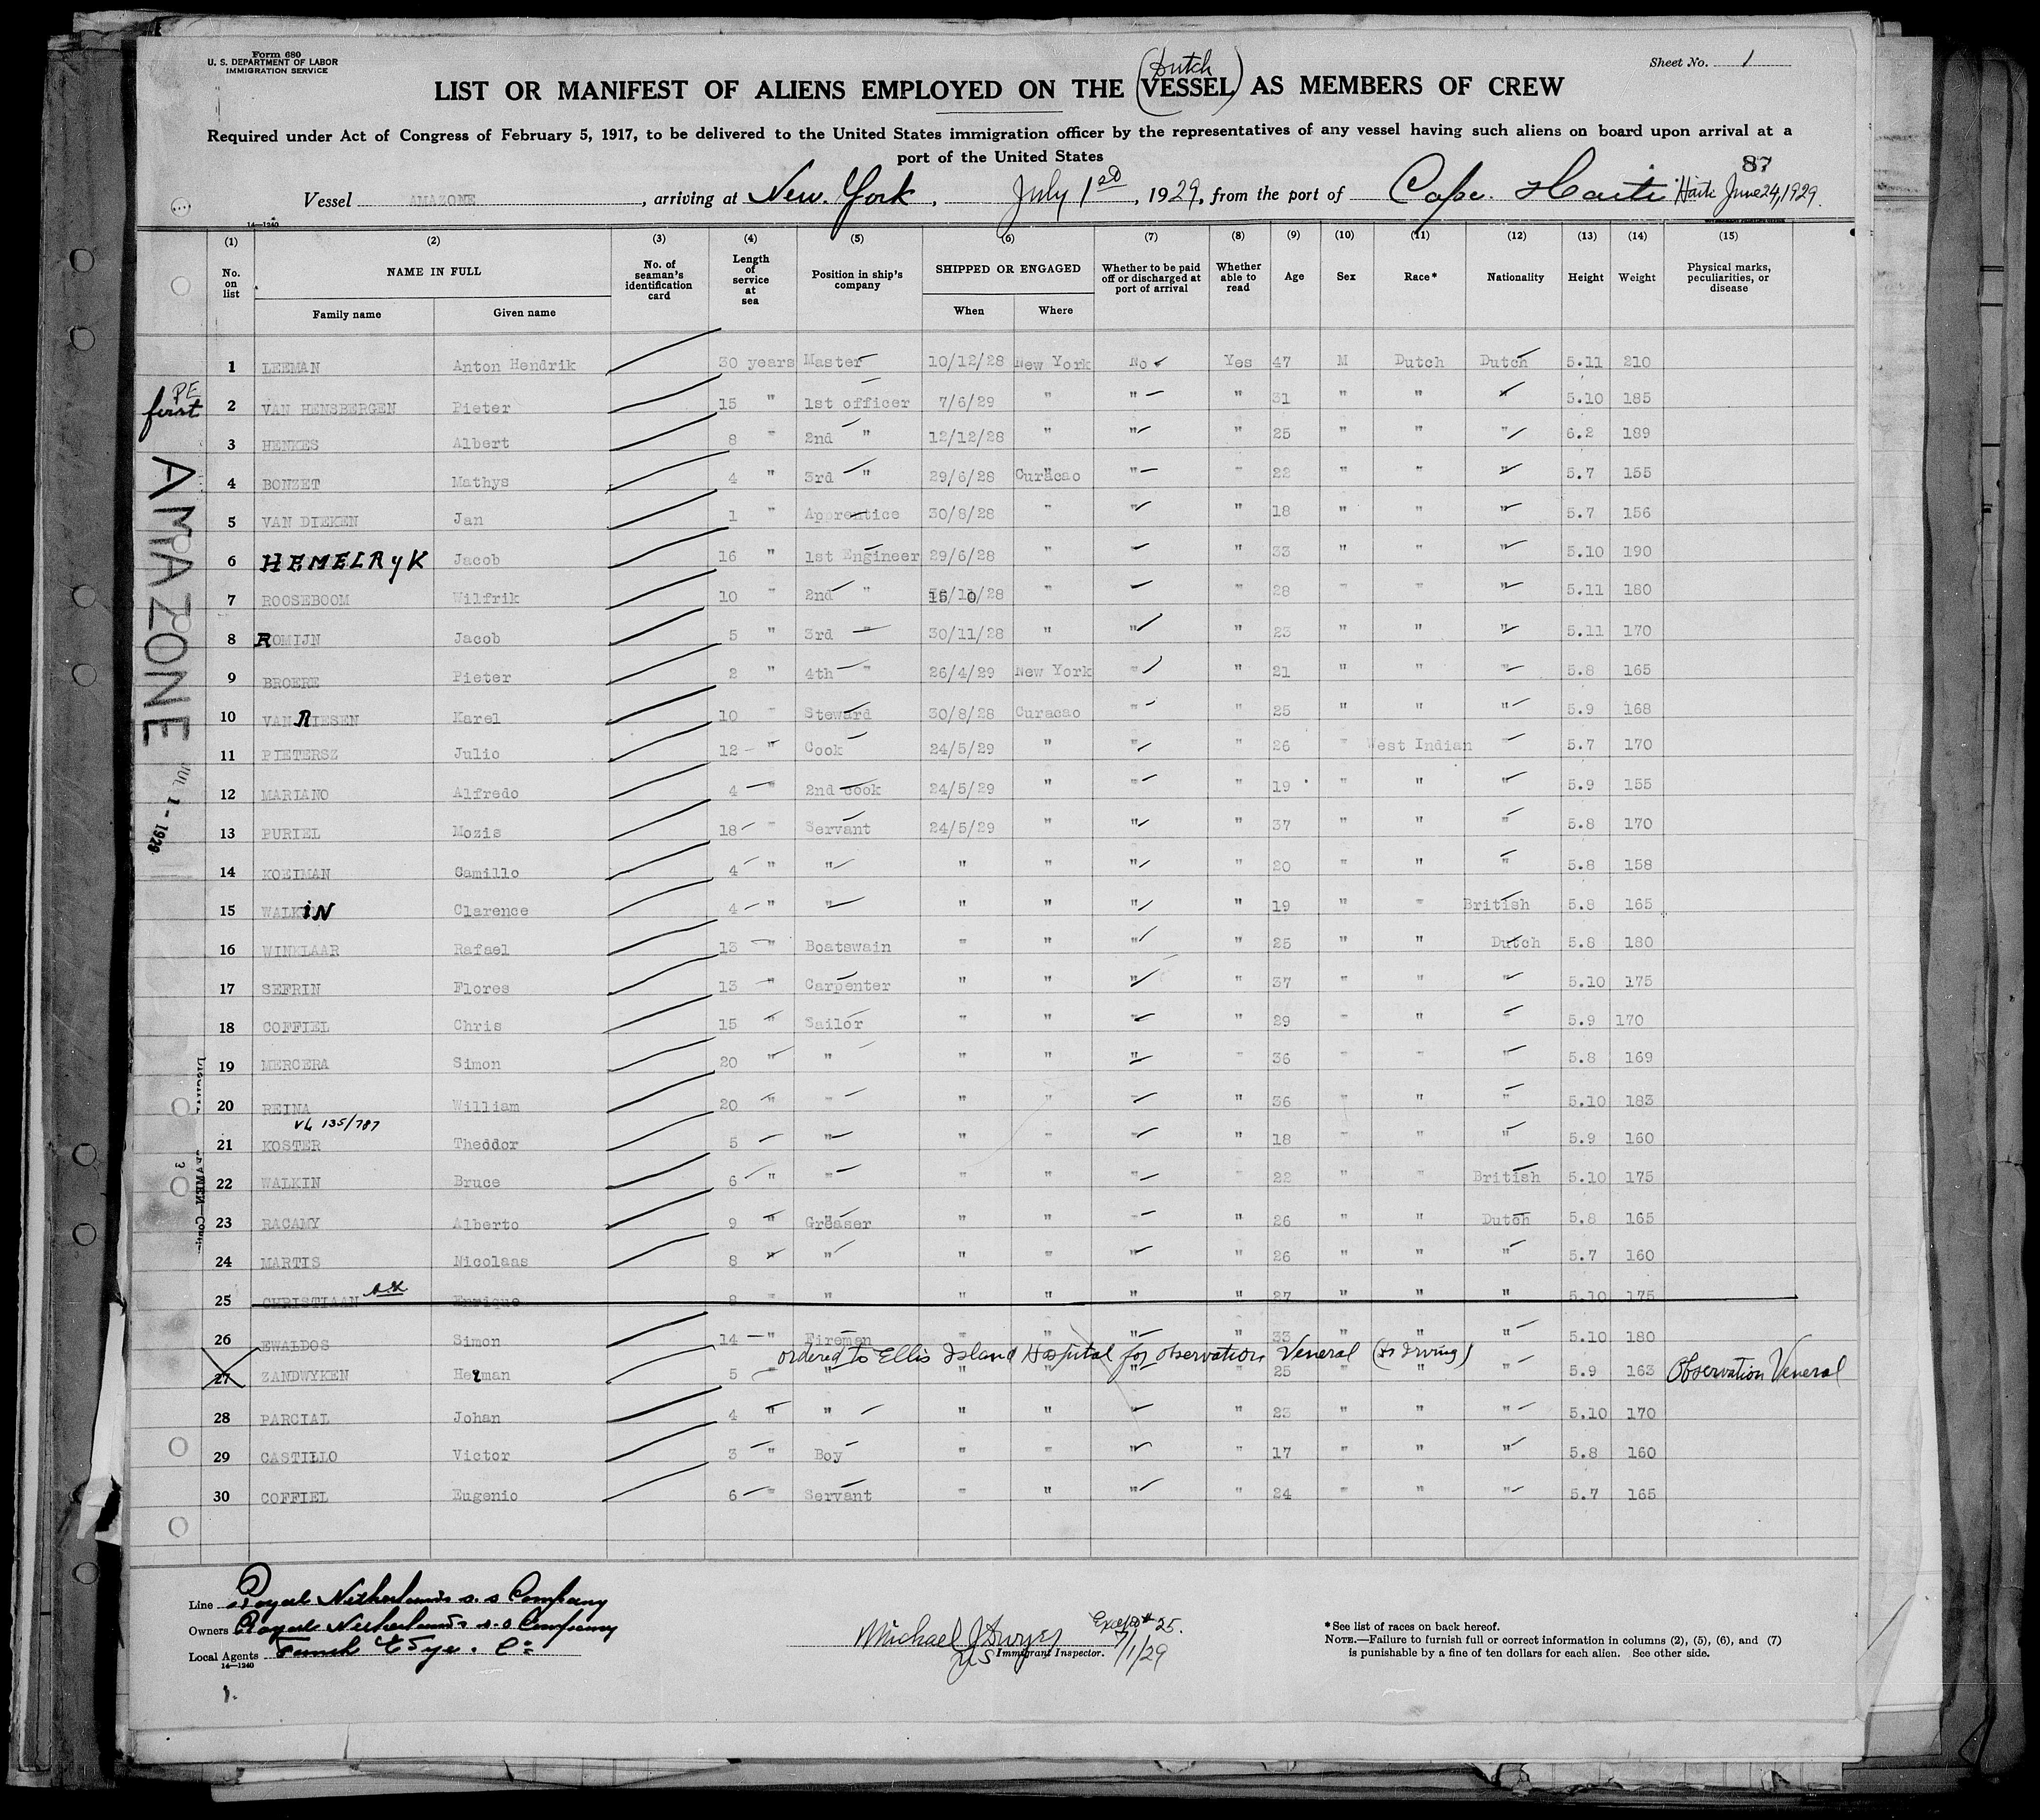 Form 680
U. S. DEPARTMENT OF LABOR
IMMIGRATION SERVICE
Sheet No. 1
Dutch
LIST OR MANIFEST OF ALIENS EMPLOYED ON THE (VESSEL) AS MEMBERS OF CREW
Required under Act of Congress of February 5, 1917, to be delivered to the United States immigration officer by the representatives of any vessel having such aliens on board upon arrival at a
port of the United States
87
Vessel AMAZONE, arriving at New York, July 1st, 1929, from the port of Cape Haiti Haiti June 24, 1929.
14—1240
(1) (2) (3) (4) (5) (6) (7) (8) (9) (10) (11) (12) (13) (14) (15)
No. on list NAME IN FULL Family name Given name No. of seaman's identification card Length of service at sea Position in ship's company SHIPPED OR ENGAGED When Where Whether to be paid off or discharged at port of arrival Whether able to read Age Sex Race* Nationality Height Weight Physical marks, peculiarities, or disease
1 LEEMAN Anton Hendrik 30 years Master 10/12/28 New York No Yes 47 M Dutch Dutch 5.11 210
PE
first
2 VAN HENSBERGEN Pieter 15 " 1st officer 7/6/29 " " " 31 " " " 5.10 185
3 HENKES Albert 8 " 2nd " 12/12/28 " " " 25 " " " 6.2 189
4 BONZET Mathys 4 " 3rd " 29/6/28 Curacao " " 22 " " " 5.7 155
5 VAN DIEKEN Jan 1 " Apprentice 30/8/28 " " " 18 " " " 5.7 156
6 HEMELRyK Jacob 16 " 1st Engineer 29/6/28 " " " 33 " " " 5.10 190
7 ROOSEBOOM Wilfrik 10 " 2nd " " " " 28 " " " 5.11 180
8 ROMIJN Jacob 5 " 3rd " 30/11/28 " " " 23 " " " 5.11 170
9 BROERE Pieter 2 " 4th " 26/4/29 New York " " 21 " " " 5.8 165
10 VAN RIESEN Karel 10 " Steward 30/8/28 Curacao " " 25 " " " 5.9 168
11 PIETERSZ Julio 12 " Cook 24/5/29 " " " 26 " West Indian " 5.7 170
12 MARIANO Alfredo 4 " 2nd cook 24/5/29 " " " 19 " " " 5.9 155
13 PURIEL Mozis 18 " Servant 24/5/29 " " " 37 " " " 5.8 170
14 KOEIMAN Camillo 4 " " " " " " 20 " " " 5.8 158
15 WALKiN Clarence 4 " " " " " " 19 " " British 5.8 165
16 WINKLAAR Rafael 13 " Boatswain " " " " 25 " " Dutch 5.8 180
17 SEFRIN Flores 13 " Carpenter " " " " 37 " " " 5.10 175
18 COFFIEL Chris 15 " Sailor " " " " 29 " " " 5.9 170
19 MERCERA Simon 20 " " " " " " 36 " " " 5.8 169
20 REINA William 20 " " " " " " 36 " " " 5.10 183
VL 135/787
21 KOSTER Theddor 5 " " " " " 18 " " " 5.9 160
22 WALKIN Bruce 6 " " " " " " 22 " " British 5.10 175
23 RACAMY Alberto 9 " Greaser " " " " 26 " " Dutch 5.8 165
24 MARTIS Nicolaas 8 " " " " " " 26 " " " 5.7 160
25 CHRISTIAAN Enrique 8 " " " " " " 27 " " " 5.10 175
26 EWALDOS Simon 14 " Fireman " " " " 33 " " " 5.10 180
ordered to Ellis Island Hospital for observation Veneral (Dr Irving)
27 ZANDWYKEN Herman 5 " " " " " " 25 " " " 5.9 163 Observation Veneral
28 PARCIAL Johan 4 " " " " " " 23 " " " 5.10 170
29 CASTILLO Victor 3 " Boy " " " " 17 " " " 5.8 160
30 COFFIEL Eugenio 6 " Servant " " " " 24 " " " 5.7 165
AMAZONE
JUL 1 - 1929
Line Royal Netherlands s.s Company
Owners Royal Netherlands s.s Company
Local Agents Funch Edye. Co
14—1240
Michael J Dwyer
US Immigrant Inspector.
Except # 25.
7/1/29
*See list of races on back hereof.
NOTE.—Failure to furnish full or correct information in columns (2), (5), (6), and (7)
is punishable by a fine of ten dollars for each alien. See other side.
1.